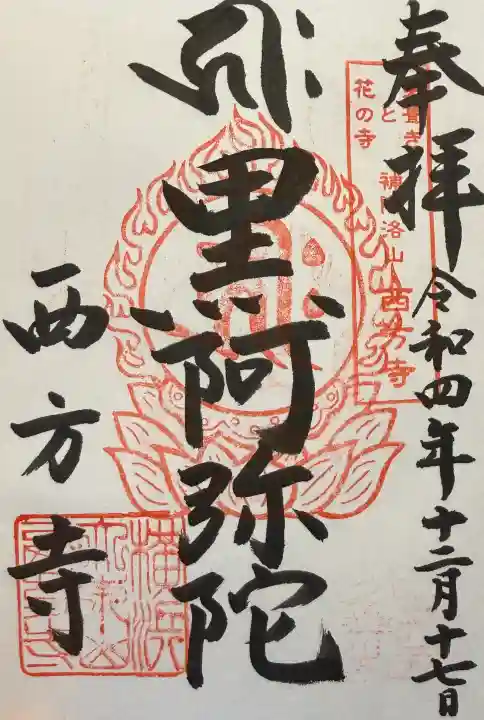 奉拝 令和四年十二月十七日
と
花の寺
補陀洛山 西方寺
黒阿弥陀
西方寺
横浜